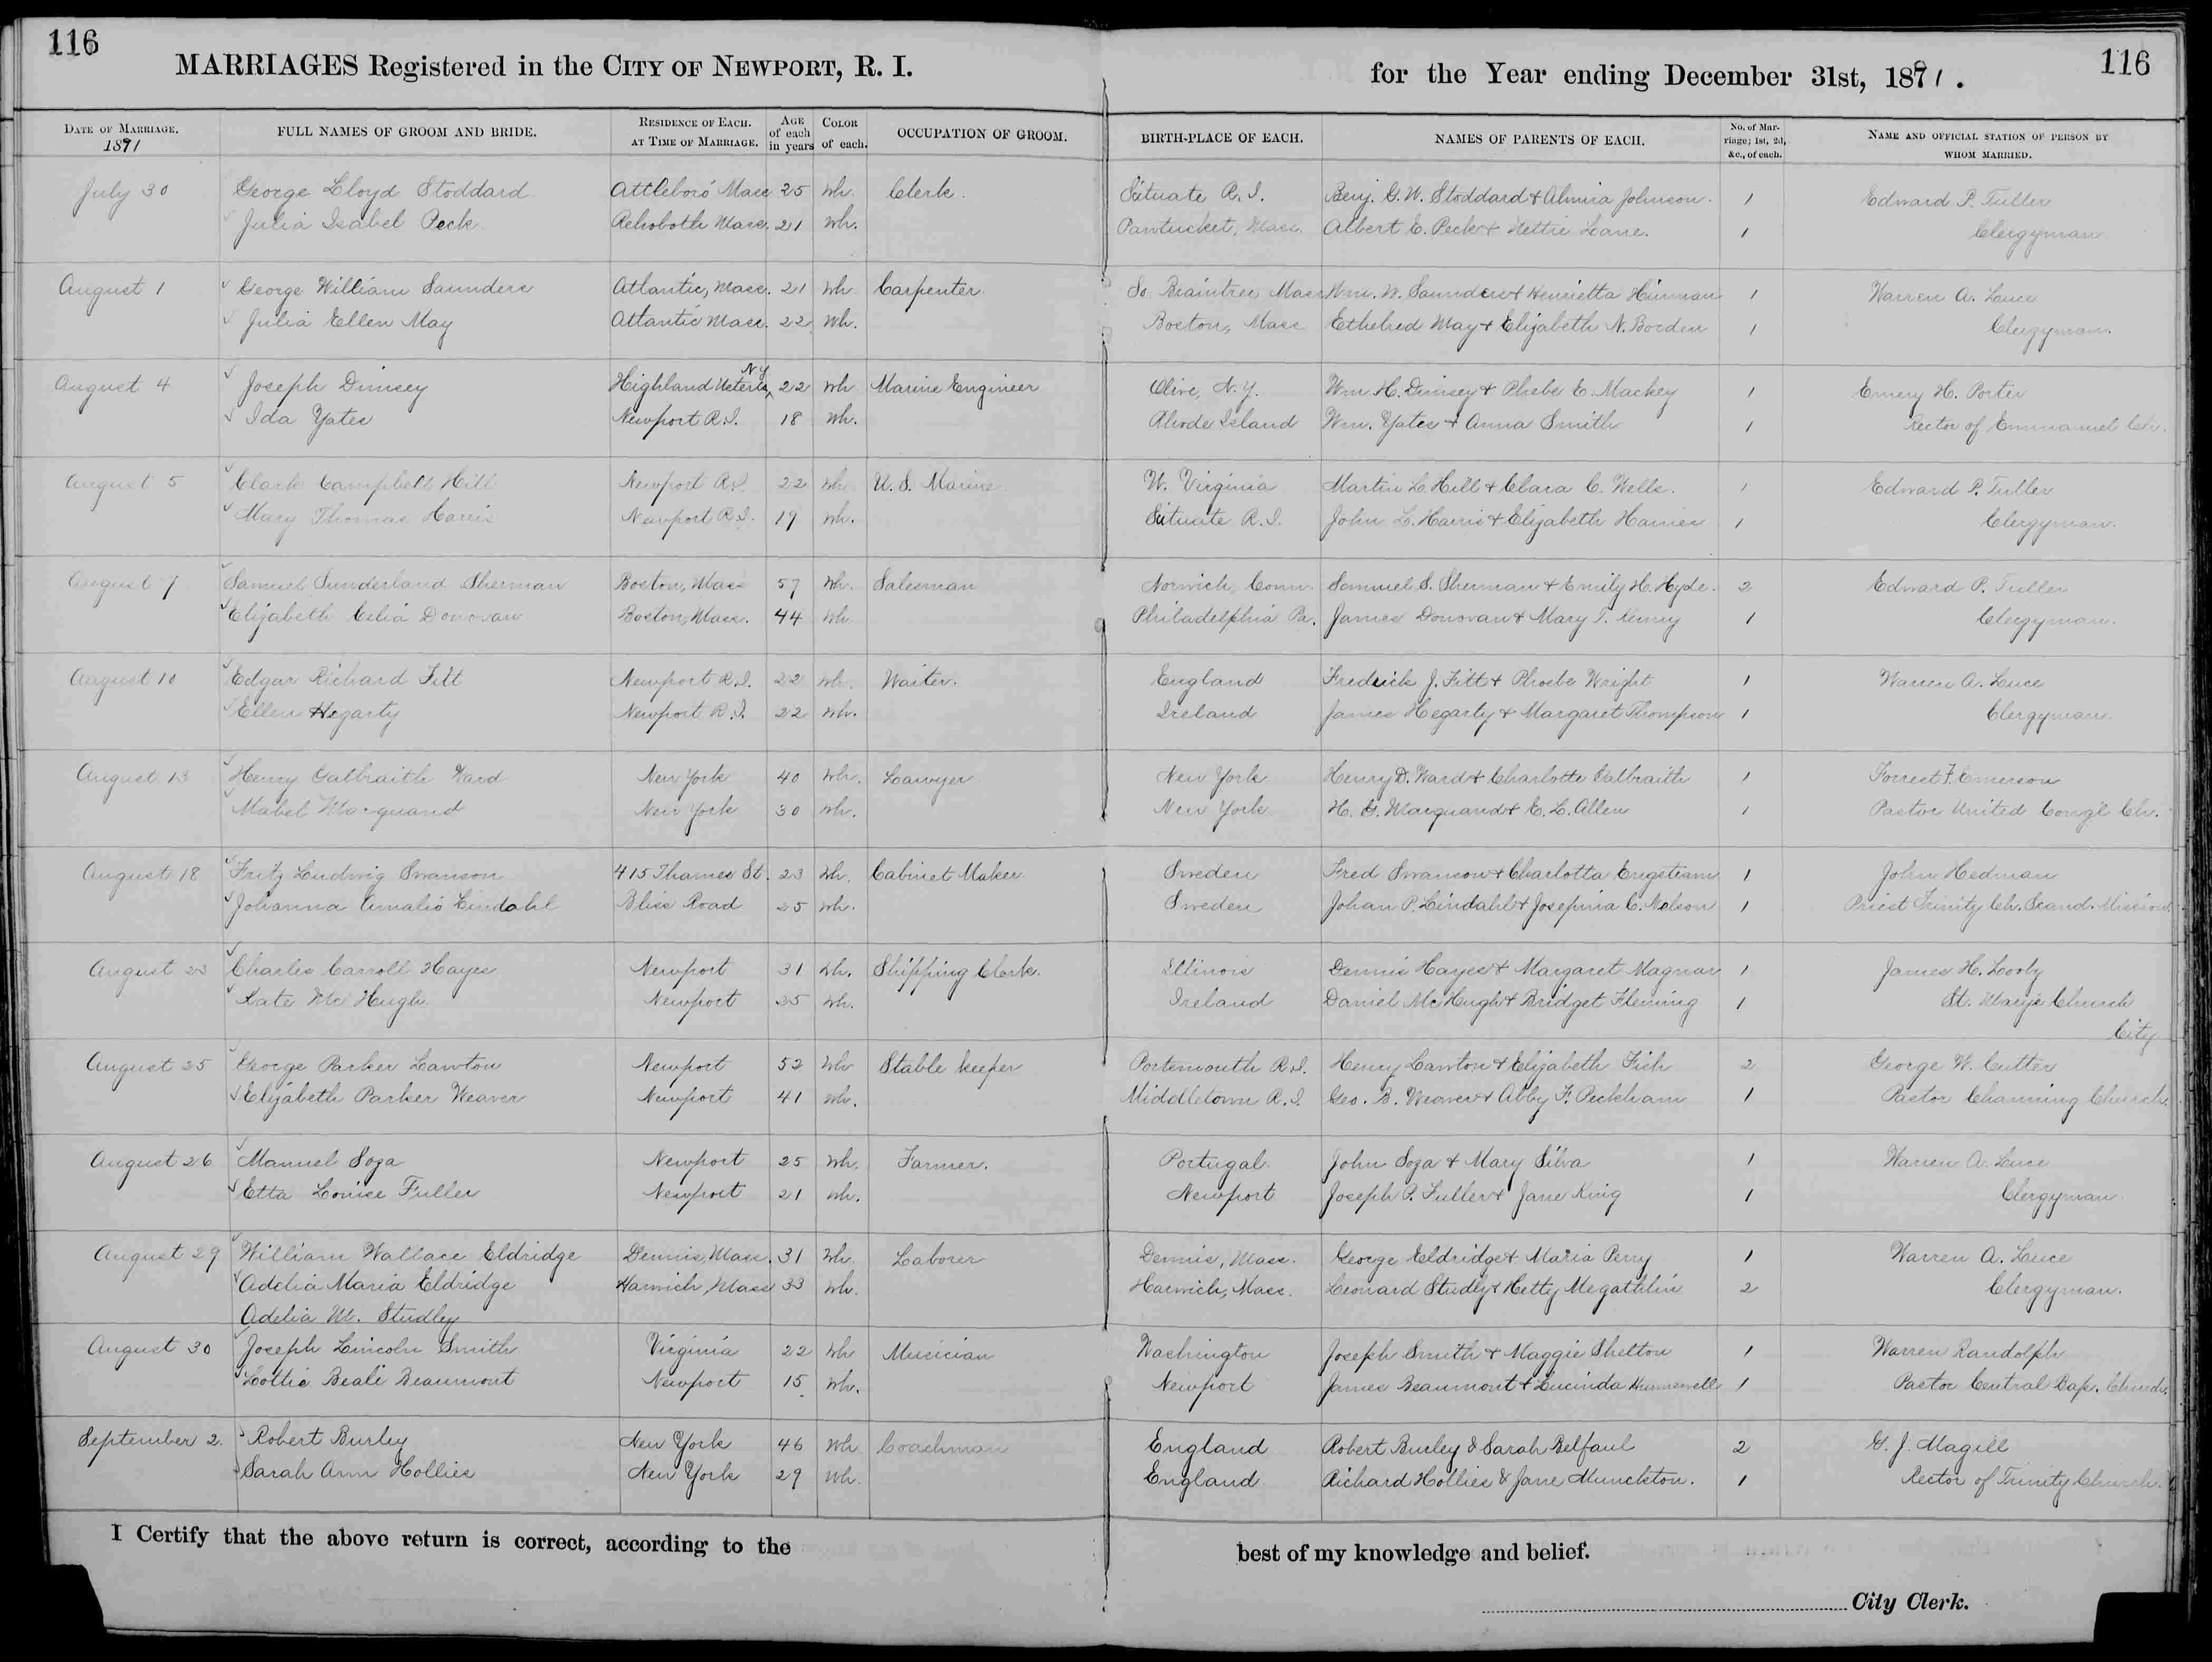 116
MARRIAGES Registered in the CITY OF NEWPORT, R. I.
for the Year ending December 31st, 1891.
116
DATE OF MARRIAGE. 1891
FULL NAMES OF GROOM AND BRIDE.
RESIDENCE OF EACH. AT TIME OF MARRIAGE.
AGE of each in years
COLOR of each.
OCCUPATION OF GROOM.
BIRTH-PLACE OF EACH.
NAMES OF PARENTS OF EACH.
No. of Marriage; 1st, 2d, &c., of each.
NAME AND OFFICIAL STATION OF PERSON BY WHOM MARRIED.
July 30 George Lloyd Stoddard Attleboro' Mass 25 Wh. Clerk. Situate R. I. Benj. G. W. Stoddard & Almira Johnson. 1 Edward P. Tuller
Julia Isabel Peck. Rehoboth Mass. 21 Wh. Pawtucket, Mass. Albert E. Peck & Nettie Lane. 1 Clergyman.
August 1 George William Saunders Atlantic, Mass. 21 Wh Carpenter. So. Braintree Mass Wm. W. Saunders & Henrietta Hinman 1 Warren A. Luce
Julia Ellen May Atlantic Mass. 22 Wh. Boston, Mass Ethelred May & Elizabeth N. Borden 1 Clergyman.
August 4 Joseph Dimsey Highland Ulster Co N.Y 22 Wh Marine Engineer Olive, N.Y. Wm. H. Dimsey & Phebe E. Mackey 1 Emery H. Porter
Ida Yates Newport R.I. 18 Wh. Rhode Island Wm. Yates & Anna Smith 1 Rector of Emmanuel Ch.
August 5 Clark Campbell Hill Newport R.I. 22 Wh U. S. Marine. W. Virginia Martin L. Hill & Clara C. Wells. 1 Edward P. Tuller
Mary Thomas Harris Newport R.I. 19 Wh. Situate R.I. John L. Harris & Elizabeth Haines 1 Clergyman.
August 7 Samuel Sunderland Sherman Boston, Mass 57 Wh. Salesman Norwich, Conn. Samuel S. Sherman & Emily H. Hyde. 2 Edward P. Tuller
Elizabeth Celia Donovan Boston, Mass. 44 Wh Philadelphia Pa. James Donovan & Mary T. Kenny 1 Clergyman.
August 10 Edgar Richard Fitt Newport R.I. 22 Wh. Waiter. England Fredrick J. Fitt & Phoebe Wright 1 Warren A. Luce
Ellen Hegarty Newport R.I. 22 Wh. Ireland James Hegarty & Margaret Thompson 1 Clergyman.
August 13 Henry Galbraith Ward New York 40 Wh. Lawyer New York Henry D. Ward & Charlotte Galbraith 1 Forrest F. Emerson
Mabel Marquand New York 30 Wh. New York H. G. Marquand & E. L. Allen 1 Pastor United Cong'l Ch.
August 18 Fritz Ludwig Swanson 415 Thames St. 23 Wh. Cabinet Maker. Sweden Fred Swanson & Charlotta Engstram 1 John Hedman
Johanna Amalis Lindahl Bliss Road 25 Wh. Sweden Johan P. Lindahl & Josefina C. Nelson 1 Priest Trinity Ch. Scand. Mission.
August 23 Charles Carroll Hayes Newport 31 Wh. Shipping Clerk. Illinois Dennis Hayes & Margaret Magnar 1 James H. Looby
Kate Mc Hugh Newport 25 Wh. Ireland Daniel McHugh & Bridget Fleming 1 St. Mary's Church
City
August 25 George Parker Lawton Newport 52 Wh Stable keeper Portsmouth R.I. Henry Lawton & Elizabeth Fish 2 George W. Cutter
Elizabeth Parker Weaver Newport 41 Wh. Middletown R.I. Geo. B. Weaver & Abby F. Peckham 1 Pastor Channing Church.
August 26 Manuel Soza Newport 25 Wh. Farmer. Portugal. John Soza & Mary Silva 1 Warren A. Luce
Etta Louise Fuller Newport 21 Wh. Newport Joseph P. Fuller & Jane King 1 Clergyman.
August 29 William Wallace Eldridge Dennis, Mass. 31 Wh. Laborer Dennis, Mass. George Eldridge & Maria Perry 1 Warren A. Luce
Adelia Maria Eldridge Harwich, Mass 33 Wh. Harwich, Mass. Leonard Studly & Hetty Megathlin 2 Clergyman.
Adelia M. Studley
August 30 Joseph Lincoln Smith Virginia 22 Wh Musician Washington Joseph Smith & Maggie Shelton 1 Warren Randolph
Lottie Beale Beaumont Newport 15 Wh. Newport James Beaumont & Lucinda Hunnewell 1 Pastor Central Bap. Church.
September 2. Robert Burley New York 46 Wh Coachman England Robert Burley & Sarah Belfaul 2 G. J. Magill
Sarah Ann Hollies New York 29 Wh. England Richard Hollies & Jane Munckton. 1 Rector of Trinity Church.
I Certify that the above return is correct, according to the best of my knowledge and belief.
City Clerk.